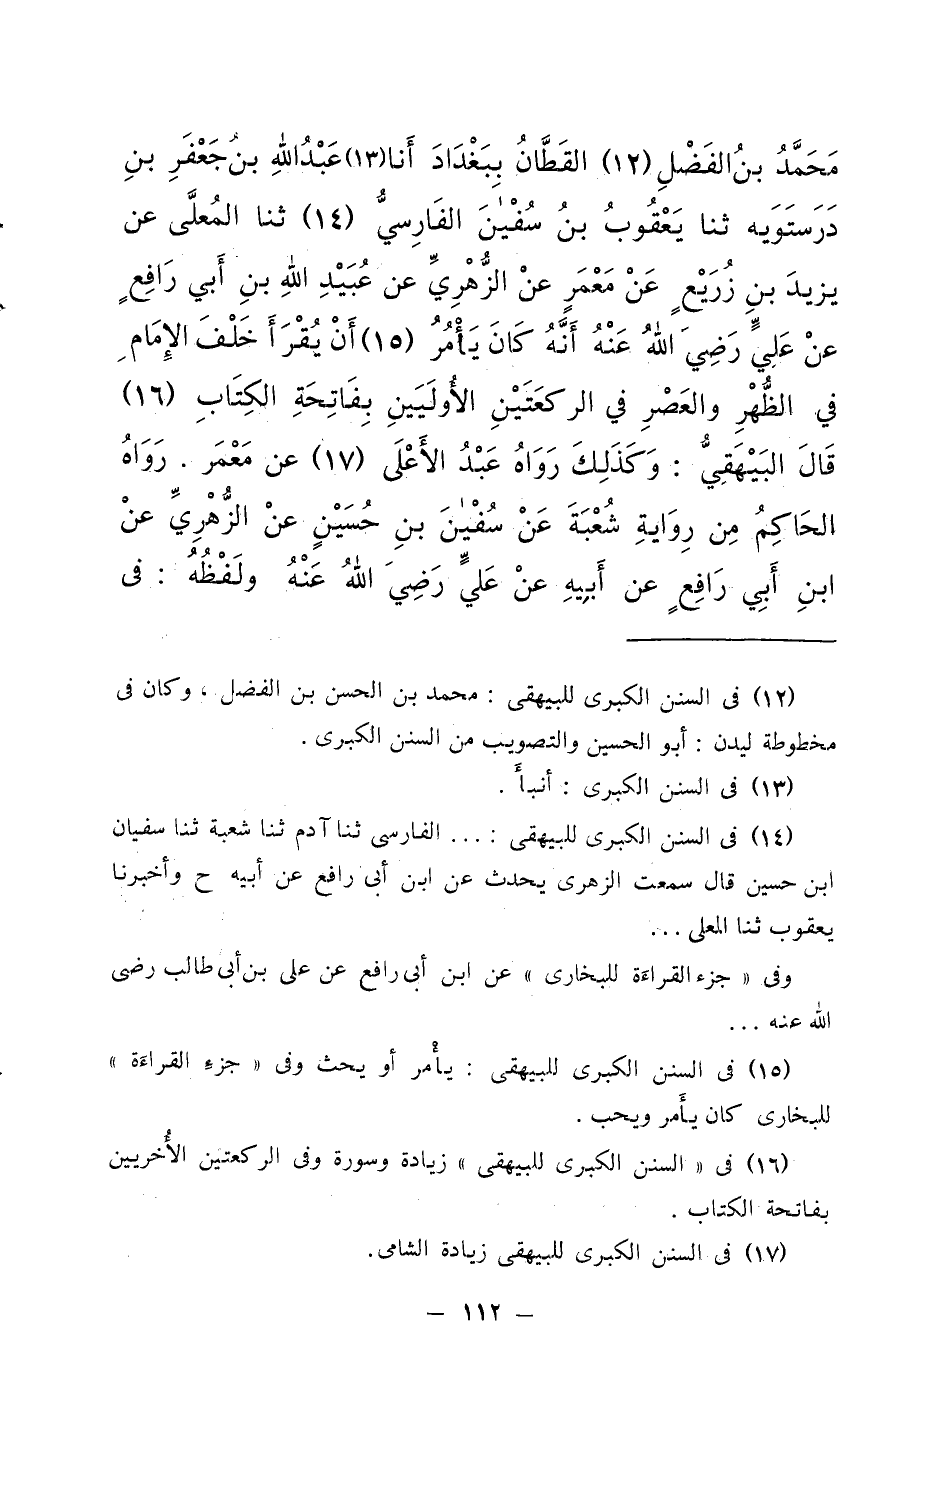 مَحَمَّدُ بنُ الفَضْلِ (١٢) القَطَّانُ بِبَغْدَادَ أَنا(١٣) عَبْدُ اللهِ بنُ جَعْفَرِ بنِ
دَرَستَوَيه ثنا يَعْقُوبُ بنُ سُفْيٰنَ الفَارِسيُّ (١٤) ثنا المُعلَّى عن
يزيدَ بنِ زُرَيْعٍ عَنْ مَعْمَرٍ عنْ الزُّهْرِيِّ عن عُبَيْدِ اللهِ بنِ أَبي رَافِعٍ
عنْ عَلِيٍّ رَضِيَ اللهُ عَنْهُ أَنَّهُ كَانَ يَأْمُرُ (١٥) أَنْ يُقْرَأَ خَلْفَ الإِمَامِ
في الظُّهْرِ والعَصْرِ في الركعَتَيْنِ الأُولَيَينِ بِفَاتِحَةِ الكِتَابِ (١٦)
قَالَ البَيْهَقِيُّ : وَكَذَلِكَ رَوَاهُ عَبْدُ الأَعْلَى (١٧) عن مَعْمَر . رَوَاهُ
الحَاكِمُ مِن رِوَايةِ شُعْبَةَ عَنْ سُفْيٰنَ بنِ حُسَيْنٍ عنْ الزُّهْرِيِّ عنْ
ابنِ أَبِي رَافِعٍ عن أَبيِهِ عنْ عَليٍّ رَضِيَ اللهُ عَنْهُ ولَفْظُهُ : فى
(١٢) فى السنن الكبرى للبيهقى : محمد بن الحسن بن الفضل ، وكان فى
مخطوطة ليدن : أبو الحسين والتصويب من السنن الكبرى .
(١٣) فى السنن الكبرى : أنبأ .
(١٤) فى السنن الكبرى للبيهقى : ... الفارسى ثنا آدم ثنا شعبة ثنا سفيان
ابن حسين قال سمعت الزهرى يحدث عن ابن أبى رافع عن أبيه ح وأخبرنا
يعقوب ثنا المعلى ...
وفى « جزء القراءة للبخارى » عن ابن أبى رافع عن على بن أبى طالب رضى
الله عنه ...
(١٥) فى السنن الكبرى للبيهقى : يأمر أو يحث وفى « جزء القراءة »
للبخارى كان يأمر ويحب .
(١٦) فى « السنن الكبرى للبيهقى » زيادة وسورة وفى الركعتين الأُخريين
بفاتحة الكتاب .
(١٧) فى السنن الكبرى للبيهقى زيادة الشامى.
– ١١٢ –